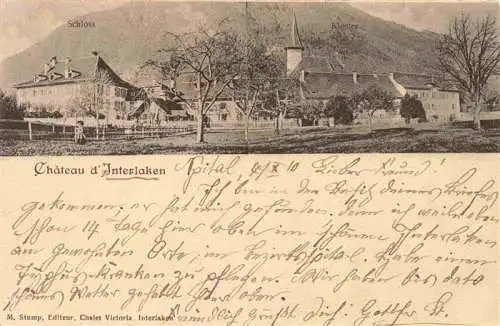 Schloss
Kloster
Château d'Interlaken
Spital, 20/X 10 Lieber Freund!
Ich bin in den Besitz deines Briefes
gekommen. er hat mich gefunden. denn ich weile eben
schon 14 Tage hier oben im schönen Interlaken
am gewohnten Orte, im Bezirksspital. habe einen
Typhus-Kranken zu pflegen. Wir haben bis dato
schönes Wetter gehabt hier oben.
grüßt Dich: Gottfr. St.
M. Stump, Editeur, Chalet Victoria, Interlaken